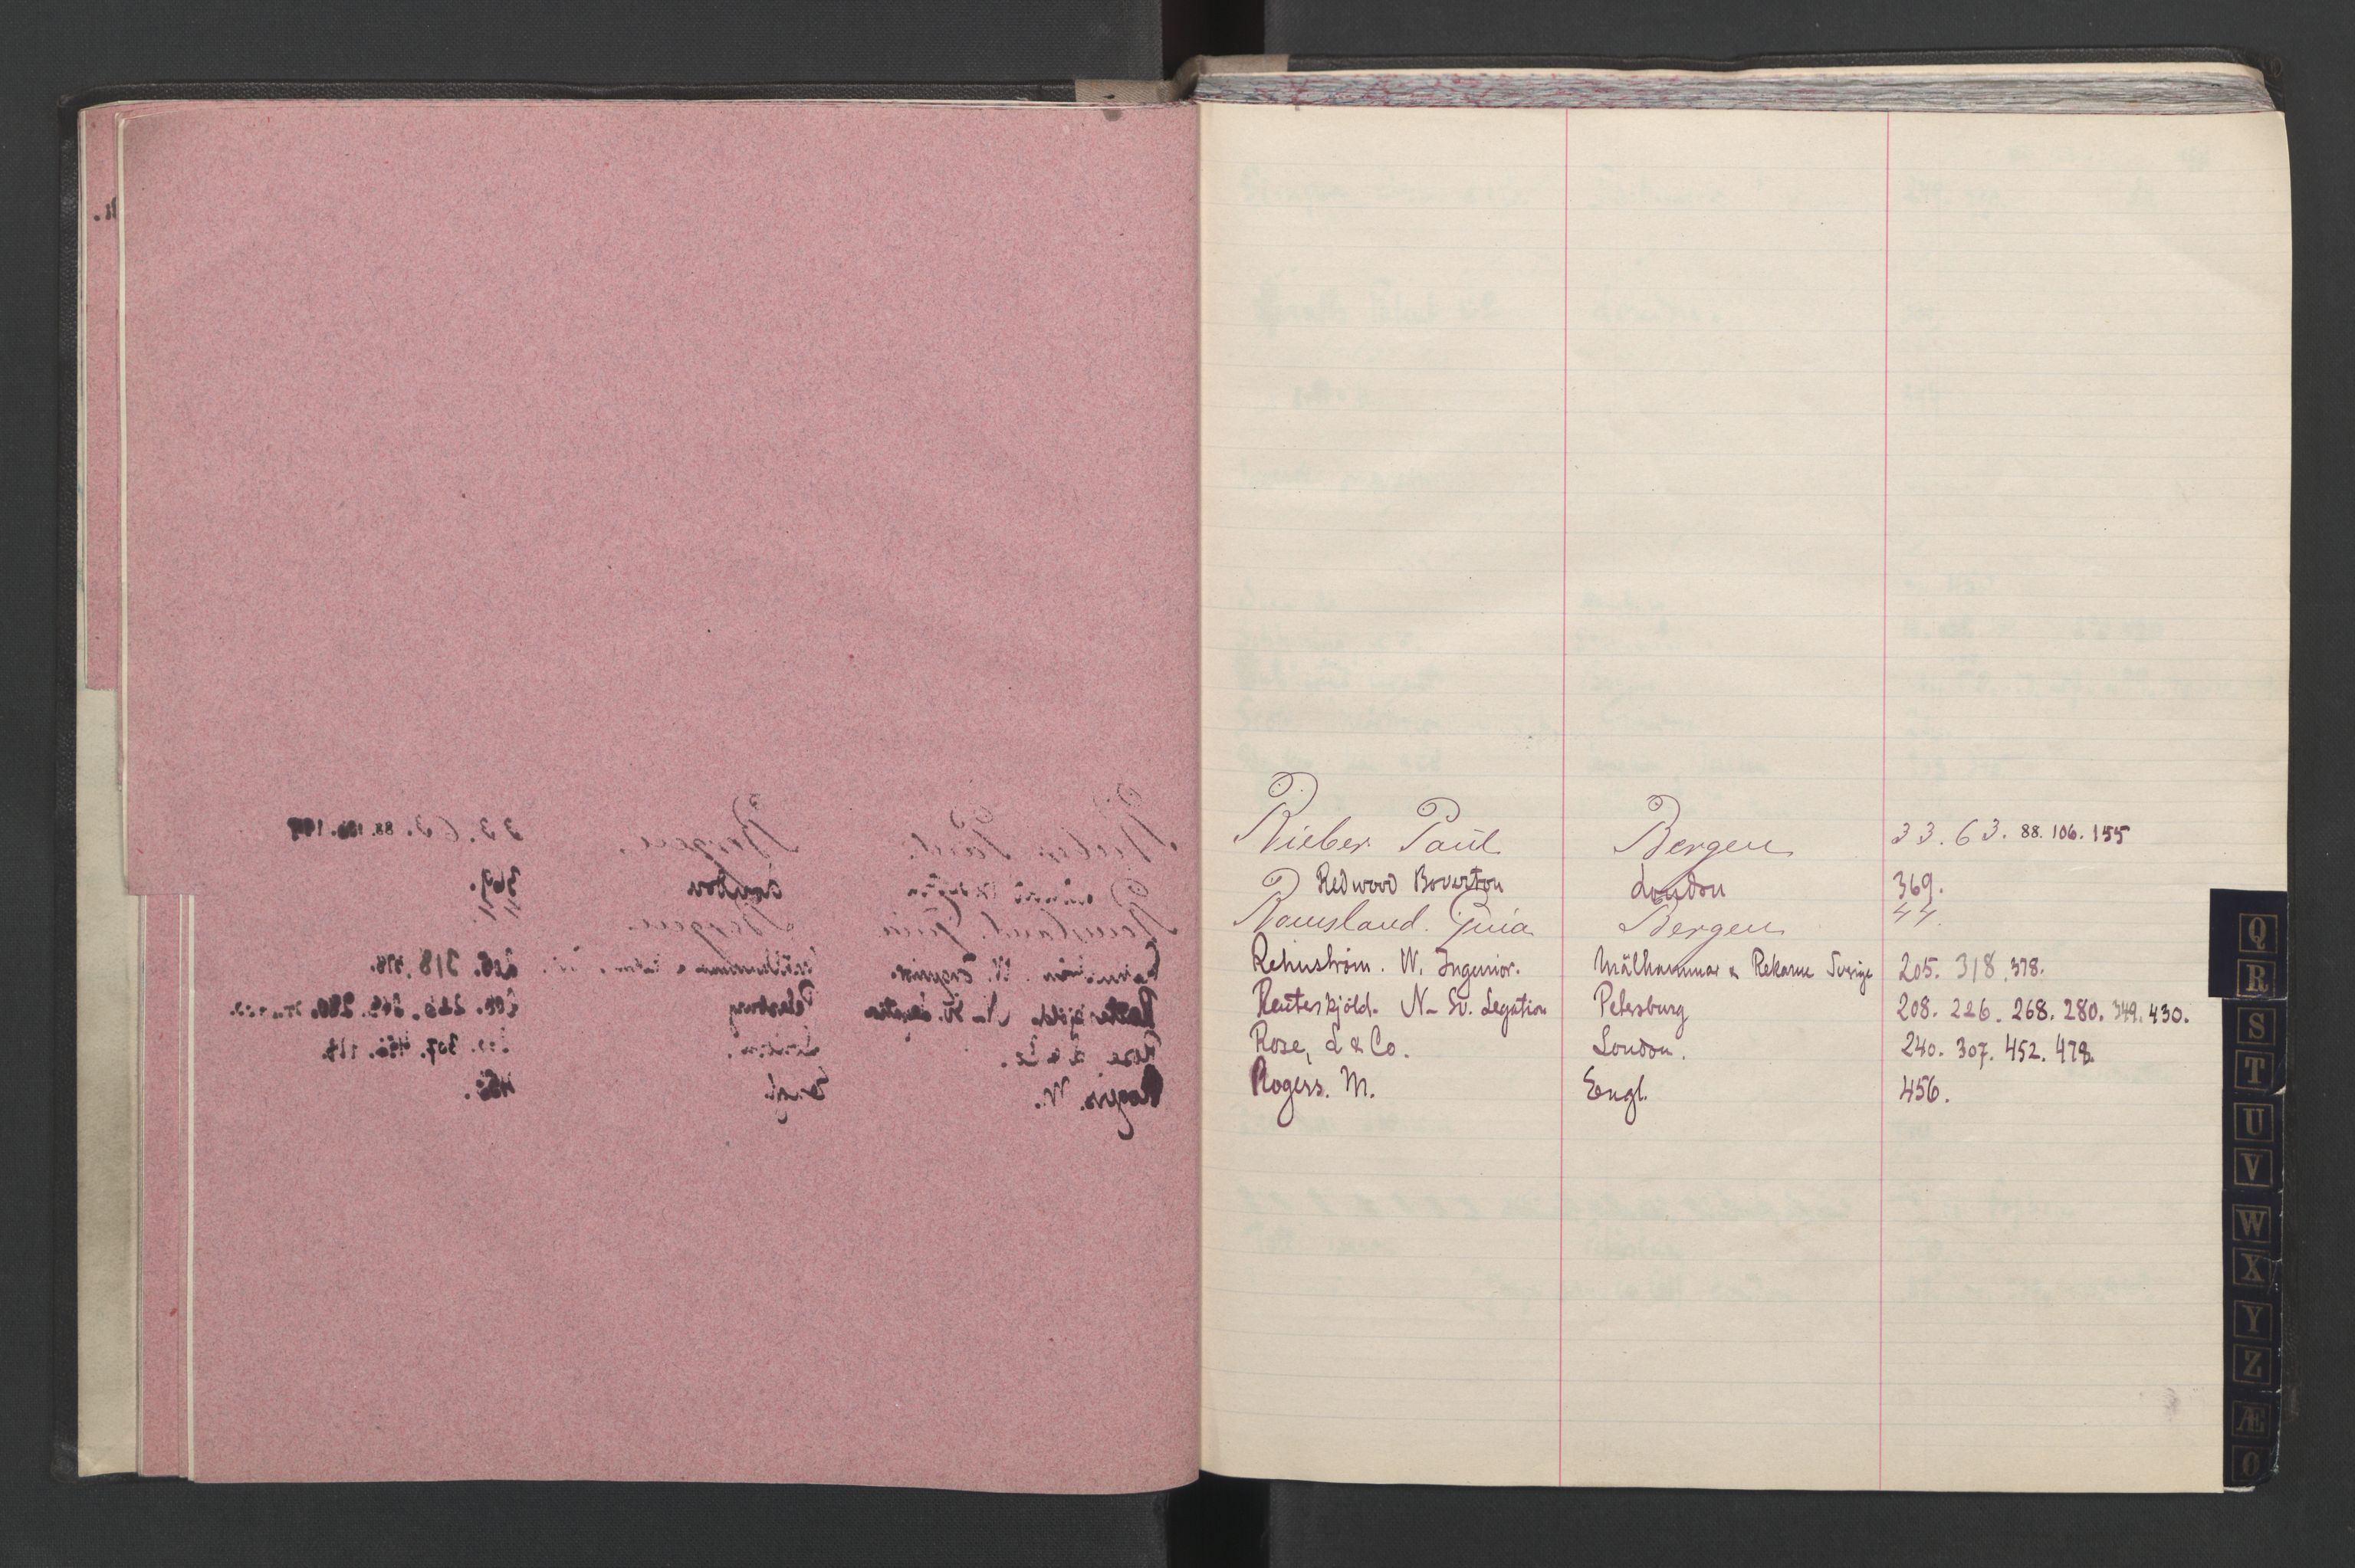 Rieber Paul Bergen 33. 63. 88. 106. 155
Redwood Boverton London 369.
Ramsland. Gina Bergen 44.
Rehnström. W. Ingeniör. Mälhammar & Rekarne Sverige 205. 318. 378.
Reuterskjöld. N- Sv. Legation Petersburg 208. 226. 268. 280. 349. 430.
Rose, L & Co. London. 240. 307. 452. 478.
Rogers. M. Engl. 456.
Q
R
S
T
U
V
W
X
Y
Z
Æ
O